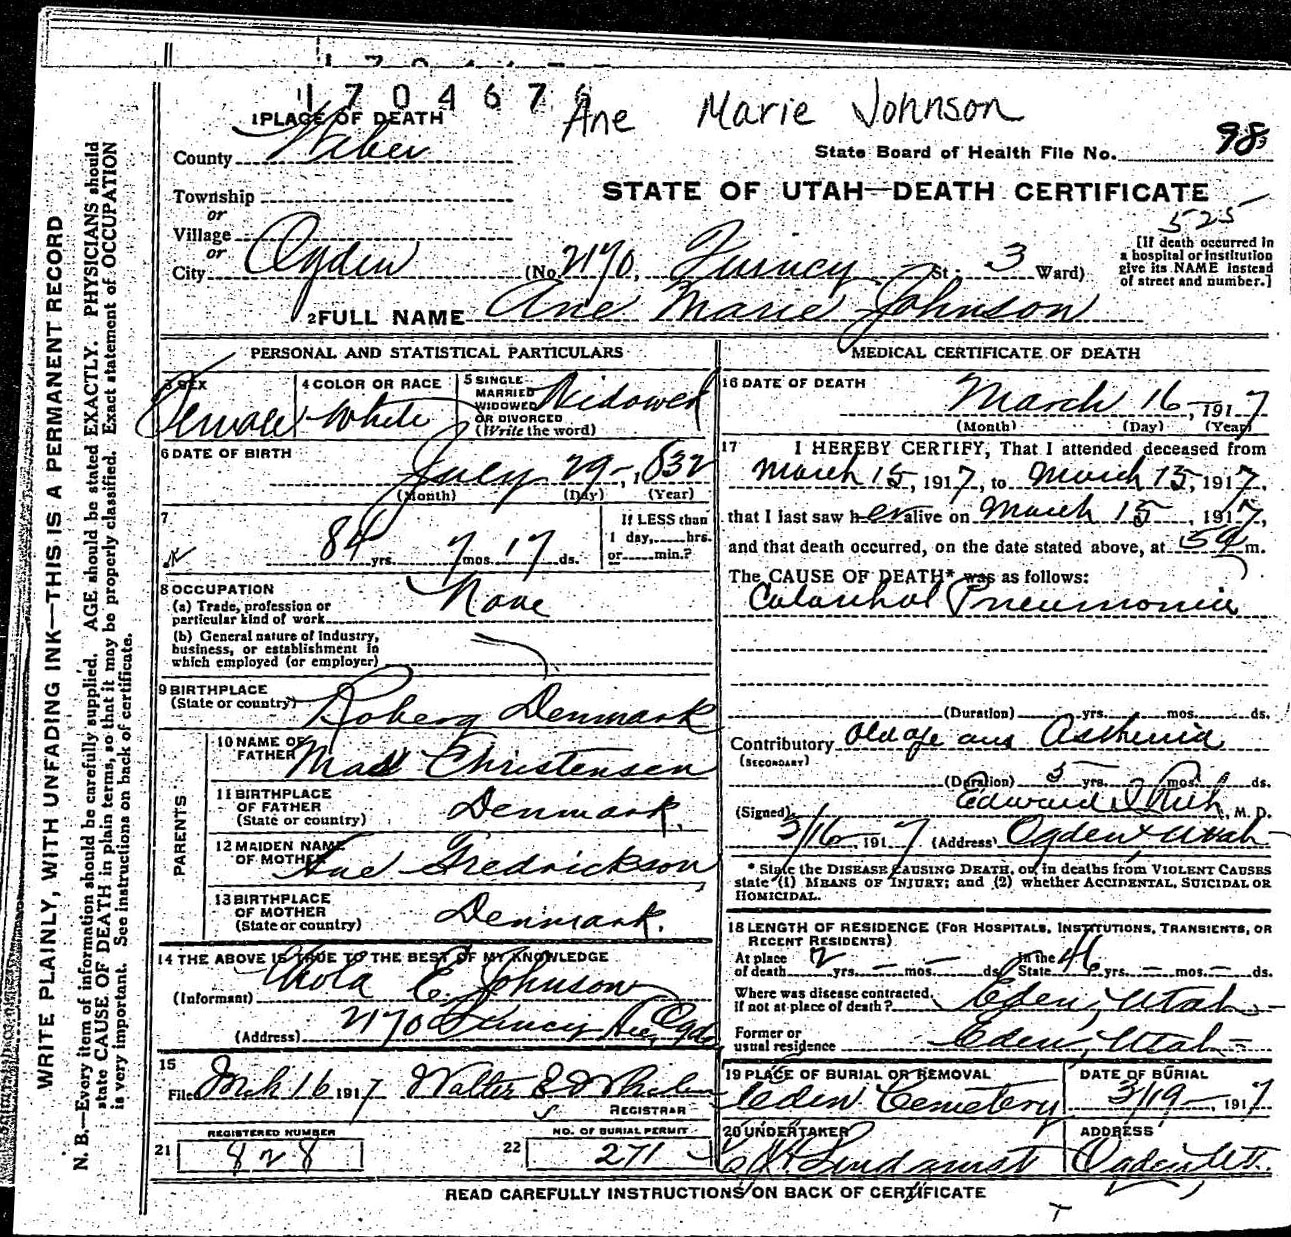 1704676
Ane Marie Johnson
1 PLACE OF DEATH
County Weber
State Board of Health File No. 98
STATE OF UTAH—DEATH CERTIFICATE
Township
or
Village
or
City Ogden (No. 2170, Quincy St; 3 Ward)
525
[If death occurred in
a hospital or institution
give its NAME instead
of street and number.]
2 FULL NAME Ane Marie Johnson
PERSONAL AND STATISTICAL PARTICULARS
3 SEX Female
4 COLOR OR RACE White
5 SINGLE
MARRIED
WIDOWED
OR DIVORCED
(Write the word) Widowed
6 DATE OF BIRTH
July 29, 1832
(Month) (Day) (Year)
7
84 yrs. 7 mos. 17 ds.
If LESS than
1 day, hrs.
or min.?
8 OCCUPATION
(a) Trade, profession or
particular kind of work None
(b) General nature of industry,
business, or establishment in
which employed (or employer)
9 BIRTHPLACE
(State or country) Roberg Denmark
PARENTS
10 NAME OF
FATHER Mads Christensen
11 BIRTHPLACE
OF FATHER
(State or country) Denmark.
12 MAIDEN NAME
OF MOTHER Ane Fredrickson
13 BIRTHPLACE
OF MOTHER
(State or country) Denmark.
14 THE ABOVE IS TRUE TO THE BEST OF MY KNOWLEDGE
(Informant) E. Johnson
(Address) 2170 Quincy Ave, Ogde
15
Filed Mch 16 1917 Walter
REGISTRAR
21 REGISTERED NUMBER
828
22 NO. OF BURIAL PERMIT
271
MEDICAL CERTIFICATE OF DEATH
16 DATE OF DEATH
March 16, 1917
(Month) (Day) (Year)
17 I HEREBY CERTIFY, That I attended deceased from
March 15, 1917, to March 15, 1917,
that I last saw her alive on March 15, 1917,
and that death occurred, on the date stated above, at 5 a m.
The CAUSE OF DEATH* was as follows:
Catarrhal Pneumonia
(Duration) yrs. mos. ds.
Contributory Old age and Asthenia
(SECONDARY)
(Duration) 5 yrs. mos. ds.
(Signed) Edward I Rich, M. D.
3/16 1917 (Address) Ogden, Utah
* State the DISEASE CAUSING DEATH, or, in deaths from VIOLENT CAUSES
state (1) MEANS OF INJURY; and (2) whether ACCIDENTAL, SUICIDAL OR
HOMICIDAL.
18 LENGTH OF RESIDENCE (FOR HOSPITALS, INSTITUTIONS, TRANSIENTS, OR
RECENT RESIDENTS)
At place
of death 2 yrs. — mos. — ds.
In the
State 46 yrs. — mos. — ds.
Where was disease contracted,
if not at place of death? Eden, Utah
Former or
usual residence Eden, Utah
19 PLACE OF BURIAL OR REMOVAL
Eden Cemetery
DATE OF BURIAL
3/19, 1917
20 UNDERTAKER
Lindquist
ADDRESS
Ogden Ut.
READ CAREFULLY INSTRUCTIONS ON BACK OF CERTIFICATE
WRITE PLAINLY, WITH UNFADING INK—THIS IS A PERMANENT RECORD
N. B.—Every item of information should be carefully supplied. AGE should be stated EXACTLY. PHYSICIANS should
state CAUSE OF DEATH in plain terms, so that it may be properly classified. Exact statement of OCCUPATION
is very important. See instructions on back of certificate.